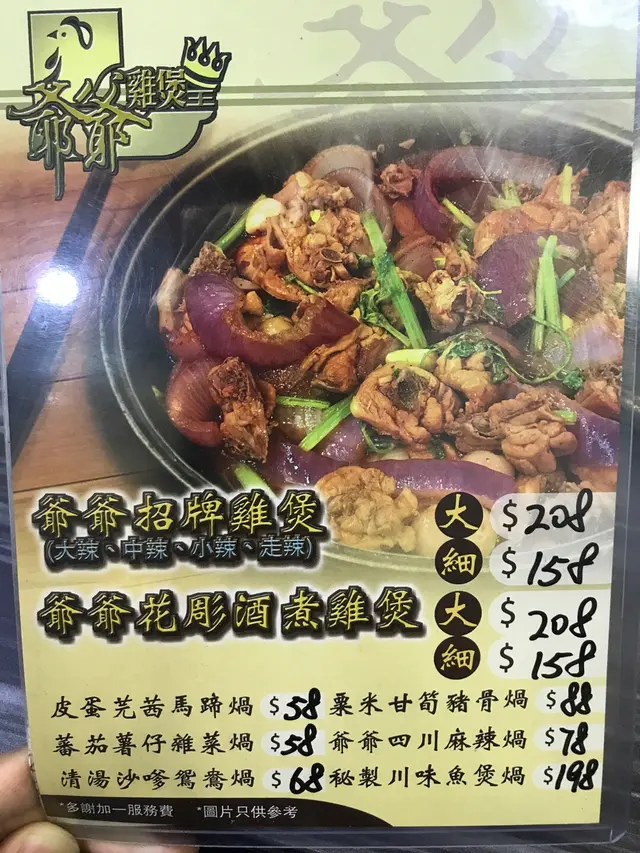 爺爺雞煲王
爺爺招牌雞煲 大 $208
(大辣、中辣、小辣、走辣) 細 $158
爺爺花彫酒煮雞煲 大 $208
細 $158
皮蛋芫茜馬蹄煱 $58 粟米甘筍豬骨煱 $88
蕃茄薯仔雜菜煱 $58 爺爺四川麻辣煱 $78
清湯沙嗲鴛鴦煱 $68 秘製川味魚煲煱 $198
*多謝加一服務費 *圖片只供參考